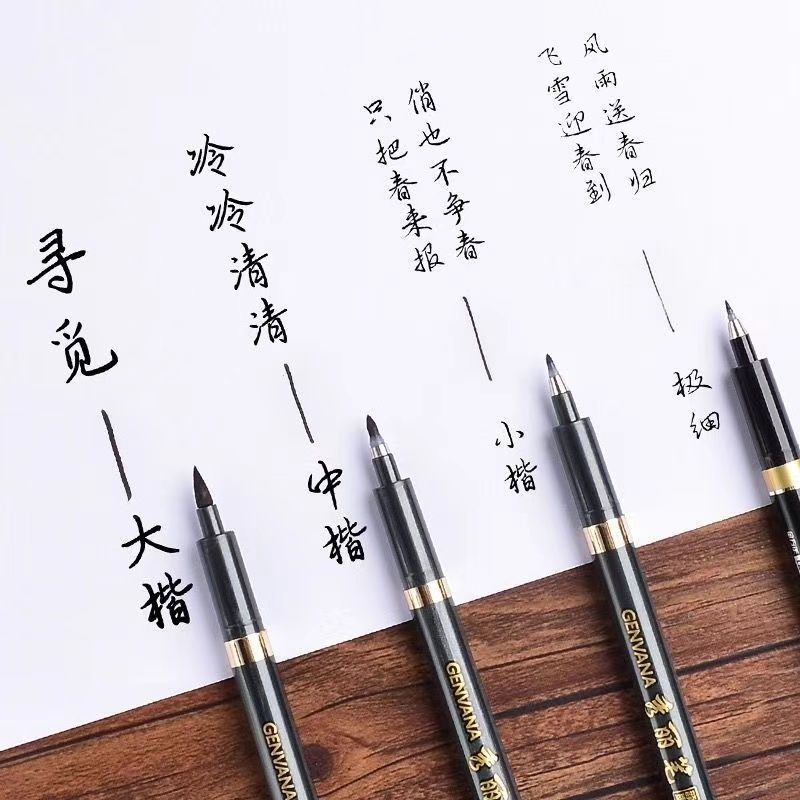 寻觅
大楷
冷冷清清
中楷
俏也不争春
只把春来报
小楷
风雨送春归
飞雪迎春到
极细
GENVANA
GENVANA 秀
GENVANA 秀丽笔